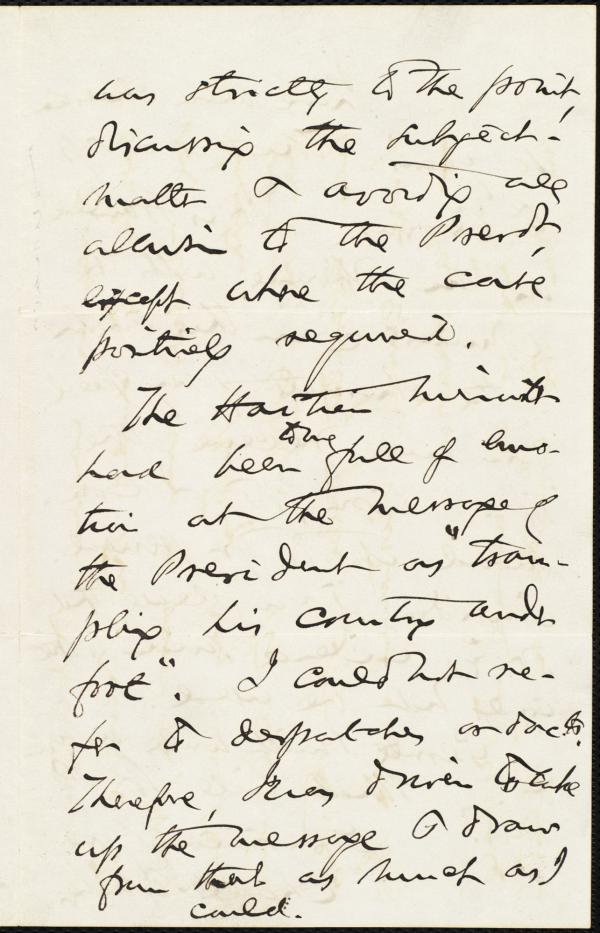 was strictly to the point,
discussing the subject-
matter & avoiding all
allusion to the Presdt,
except where the case
positively required.
The Haitien Minister
had been to me full of emo-
tion at the message of
the President as "tram-
pling his country under
foot". I could not re-
fer to despatches or docts.
Therefore, I was driven to take
up the message & draw
from that as much as I
could.